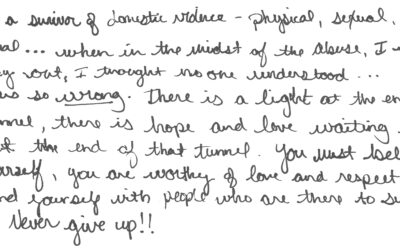 a survivor of domestic violence - physical, sexual,
al... when in the midst of the abuse, I
out, I thought no one understood...
so wrong. There is a light at the en
nnel, there is hope and love waiting
the end of that tunnel. You must bel
urself, you are worthy of love and respect
nd yourself with people who are there to su
Never give up!!